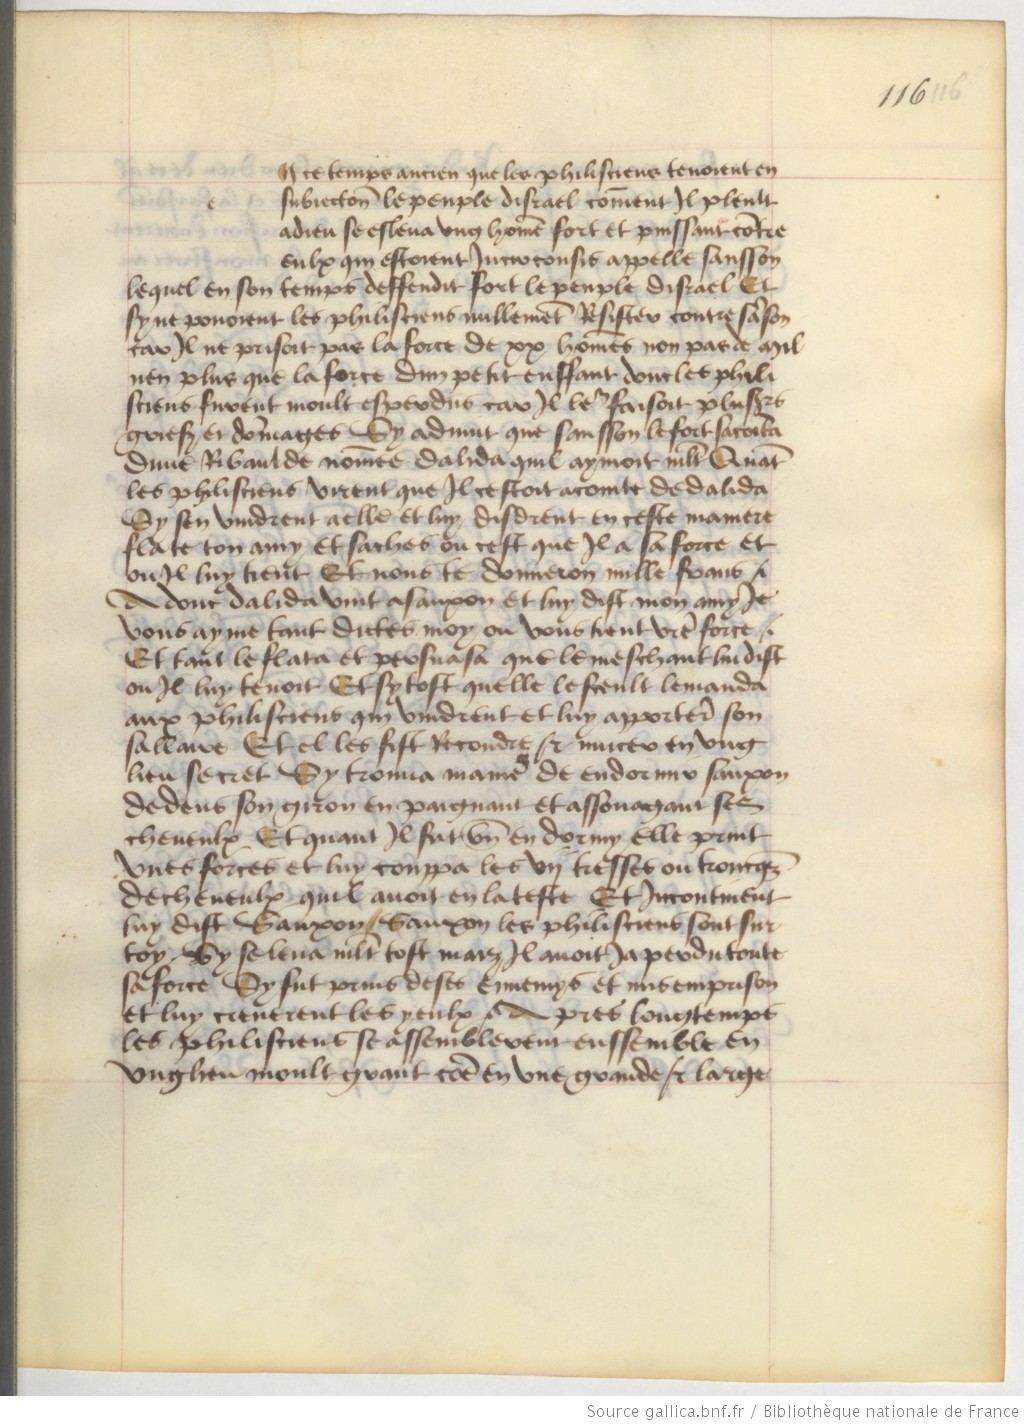 116 116
N ce temps ancien que les philisciens tenoient en
e
subiection le peuple disrael com̄ent Il pleult
a dieu se esleua vng hōme fort et puissant cōtre
eulx qui estoient Incirconsis appelle sansson
lequel en son temps deffendit fort le peuple disrael Et
sy ne pouoient les philisciens nullemēt Resister contre sāson
car Il ne prisoit pas la force de xx hōmes non pas de mil
nen plus que la force dun petit enffant donc les phili
sciens furent moult esperdus car Il leur faisoit plusrs
griefz et dōmages Sy aduint que sansson le fort sacointa
dune Ribaulde nōmee dalida quil aymoit mlt Quāt
les philisciens virent que Il cestoit acointe de dalida
Sy sen vindrent a elle et luy disdrent en ceste maniere
flate ton amy et saches ou cest que Il a sa force et
ou Il luy tient Et nous te donneron mille frans /
A donc dalida vint a sauxon et luy dist mon amy Je
vous ayme tant dictes moy ou vous tient vrē force /
Et tant le flata et persuasa que le meschant lui dist
ou Il luy tenoit Et sy tost quelle le sceult le manda
aux philisciens qui vindrent et luy apporter̄ son
sallaire Et el les fist Recondre & mucer en vng
lieu secret Sy trouua manie de endormir sauxon
dedens son giron en paignant et assouagant ses
cheueulx Et quant Il fut bn̄ en dormy elle print
vnes forces et luy couppa les vij tresses ou troncqz
de cheueulx quil auoit en la teste Et Incontinent
luy dist Sauxon / Sauxon les philisciens sont sur
toy / Sy se leua mlt tost mais Il auoit Ja perdu toute
sa force Sy fut prins de ses Ennemys et mis en prison
et luy creuerent les yeulx / A pres longtemps
les philisciens se assemblerent enssemble en
vng lieu moult grant cōe en vne grande & large
Source gallica.bnf.fr / Bibliothèque nationale de France